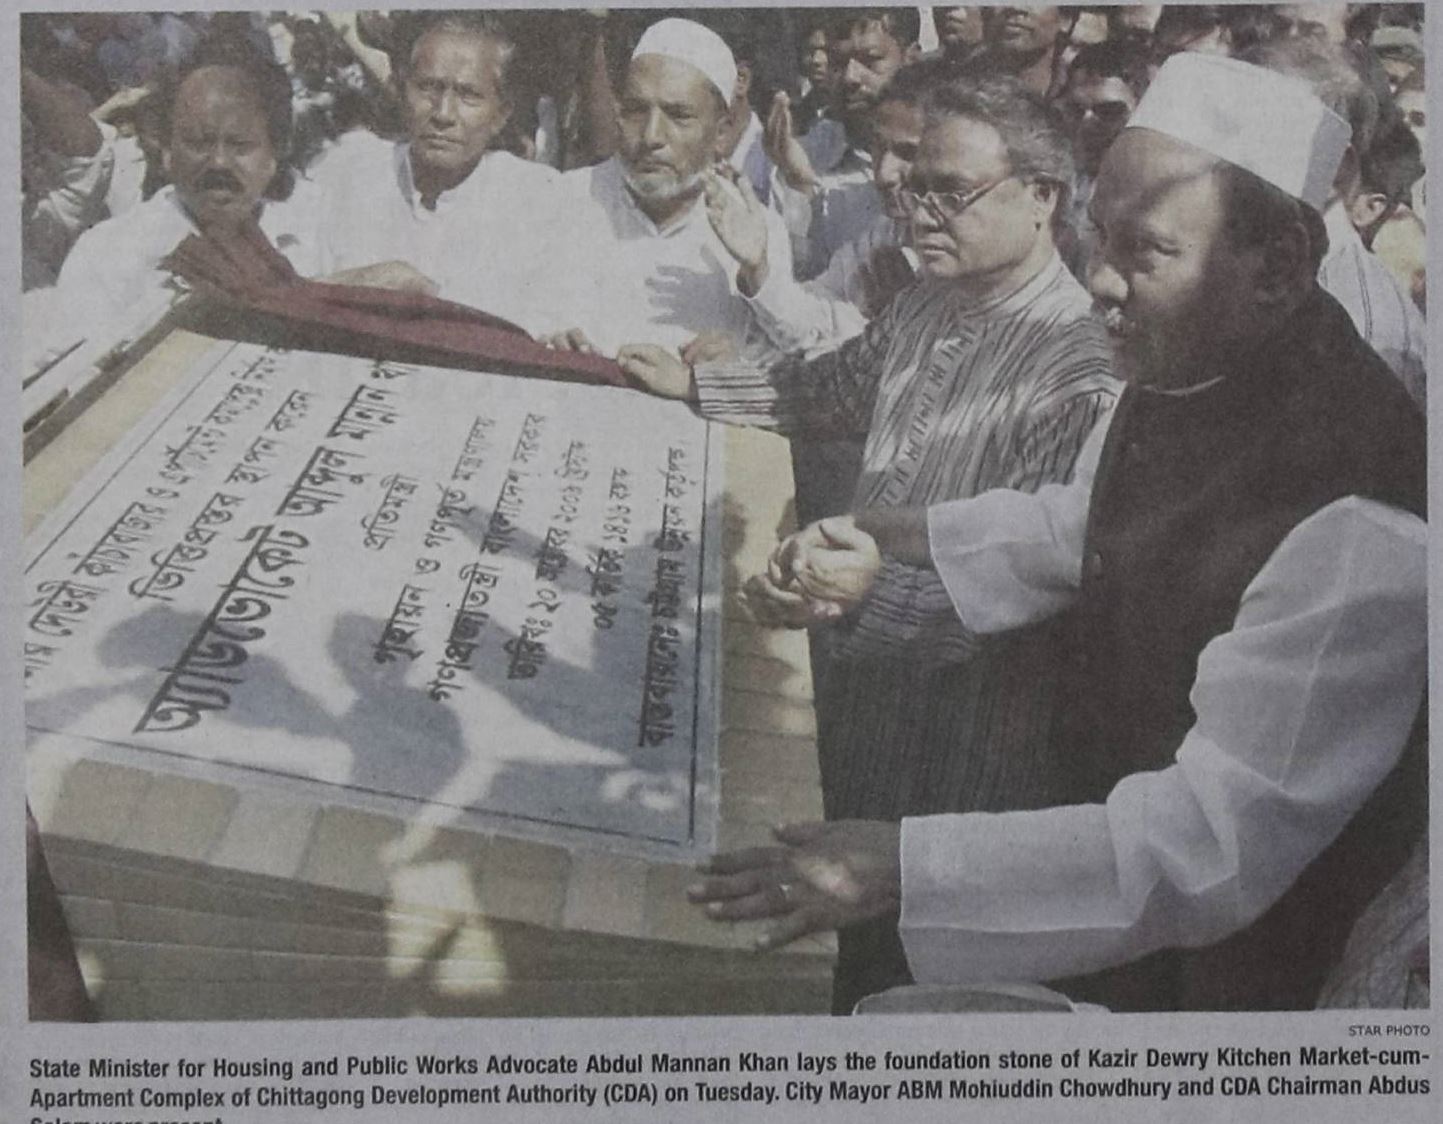 দেউরী কাঁচাবাজার ও এপার্টমেন্ট কমপ্লেক্স
ভিত্তিপ্রস্তর স্থাপন করেন
অ্যাডভোকেট আব্দুল মান্নান
প্রতিমন্ত্রী
গৃহায়ন ও গণপূর্ত মন্ত্রণালয়
গণপ্রজাতন্ত্রী বাংলাদেশ সরকার
তারিখঃ ২০ অক্টোবর ২০০৯ খ্রিস্টাব্দ
০৫ কার্তিক ১৪১৬ বঙ্গাব্দ
বাস্তবায়নেঃ চট্টগ্রাম উন্নয়ন কর্তৃপক্ষ।
STAR PHOTO
State Minister for Housing and Public Works Advocate Abdul Mannan Khan lays the foundation stone of Kazir Dewry Kitchen Market-cum-
Apartment Complex of Chittagong Development Authority (CDA) on Tuesday. City Mayor ABM Mohiuddin Chowdhury and CDA Chairman Abdus